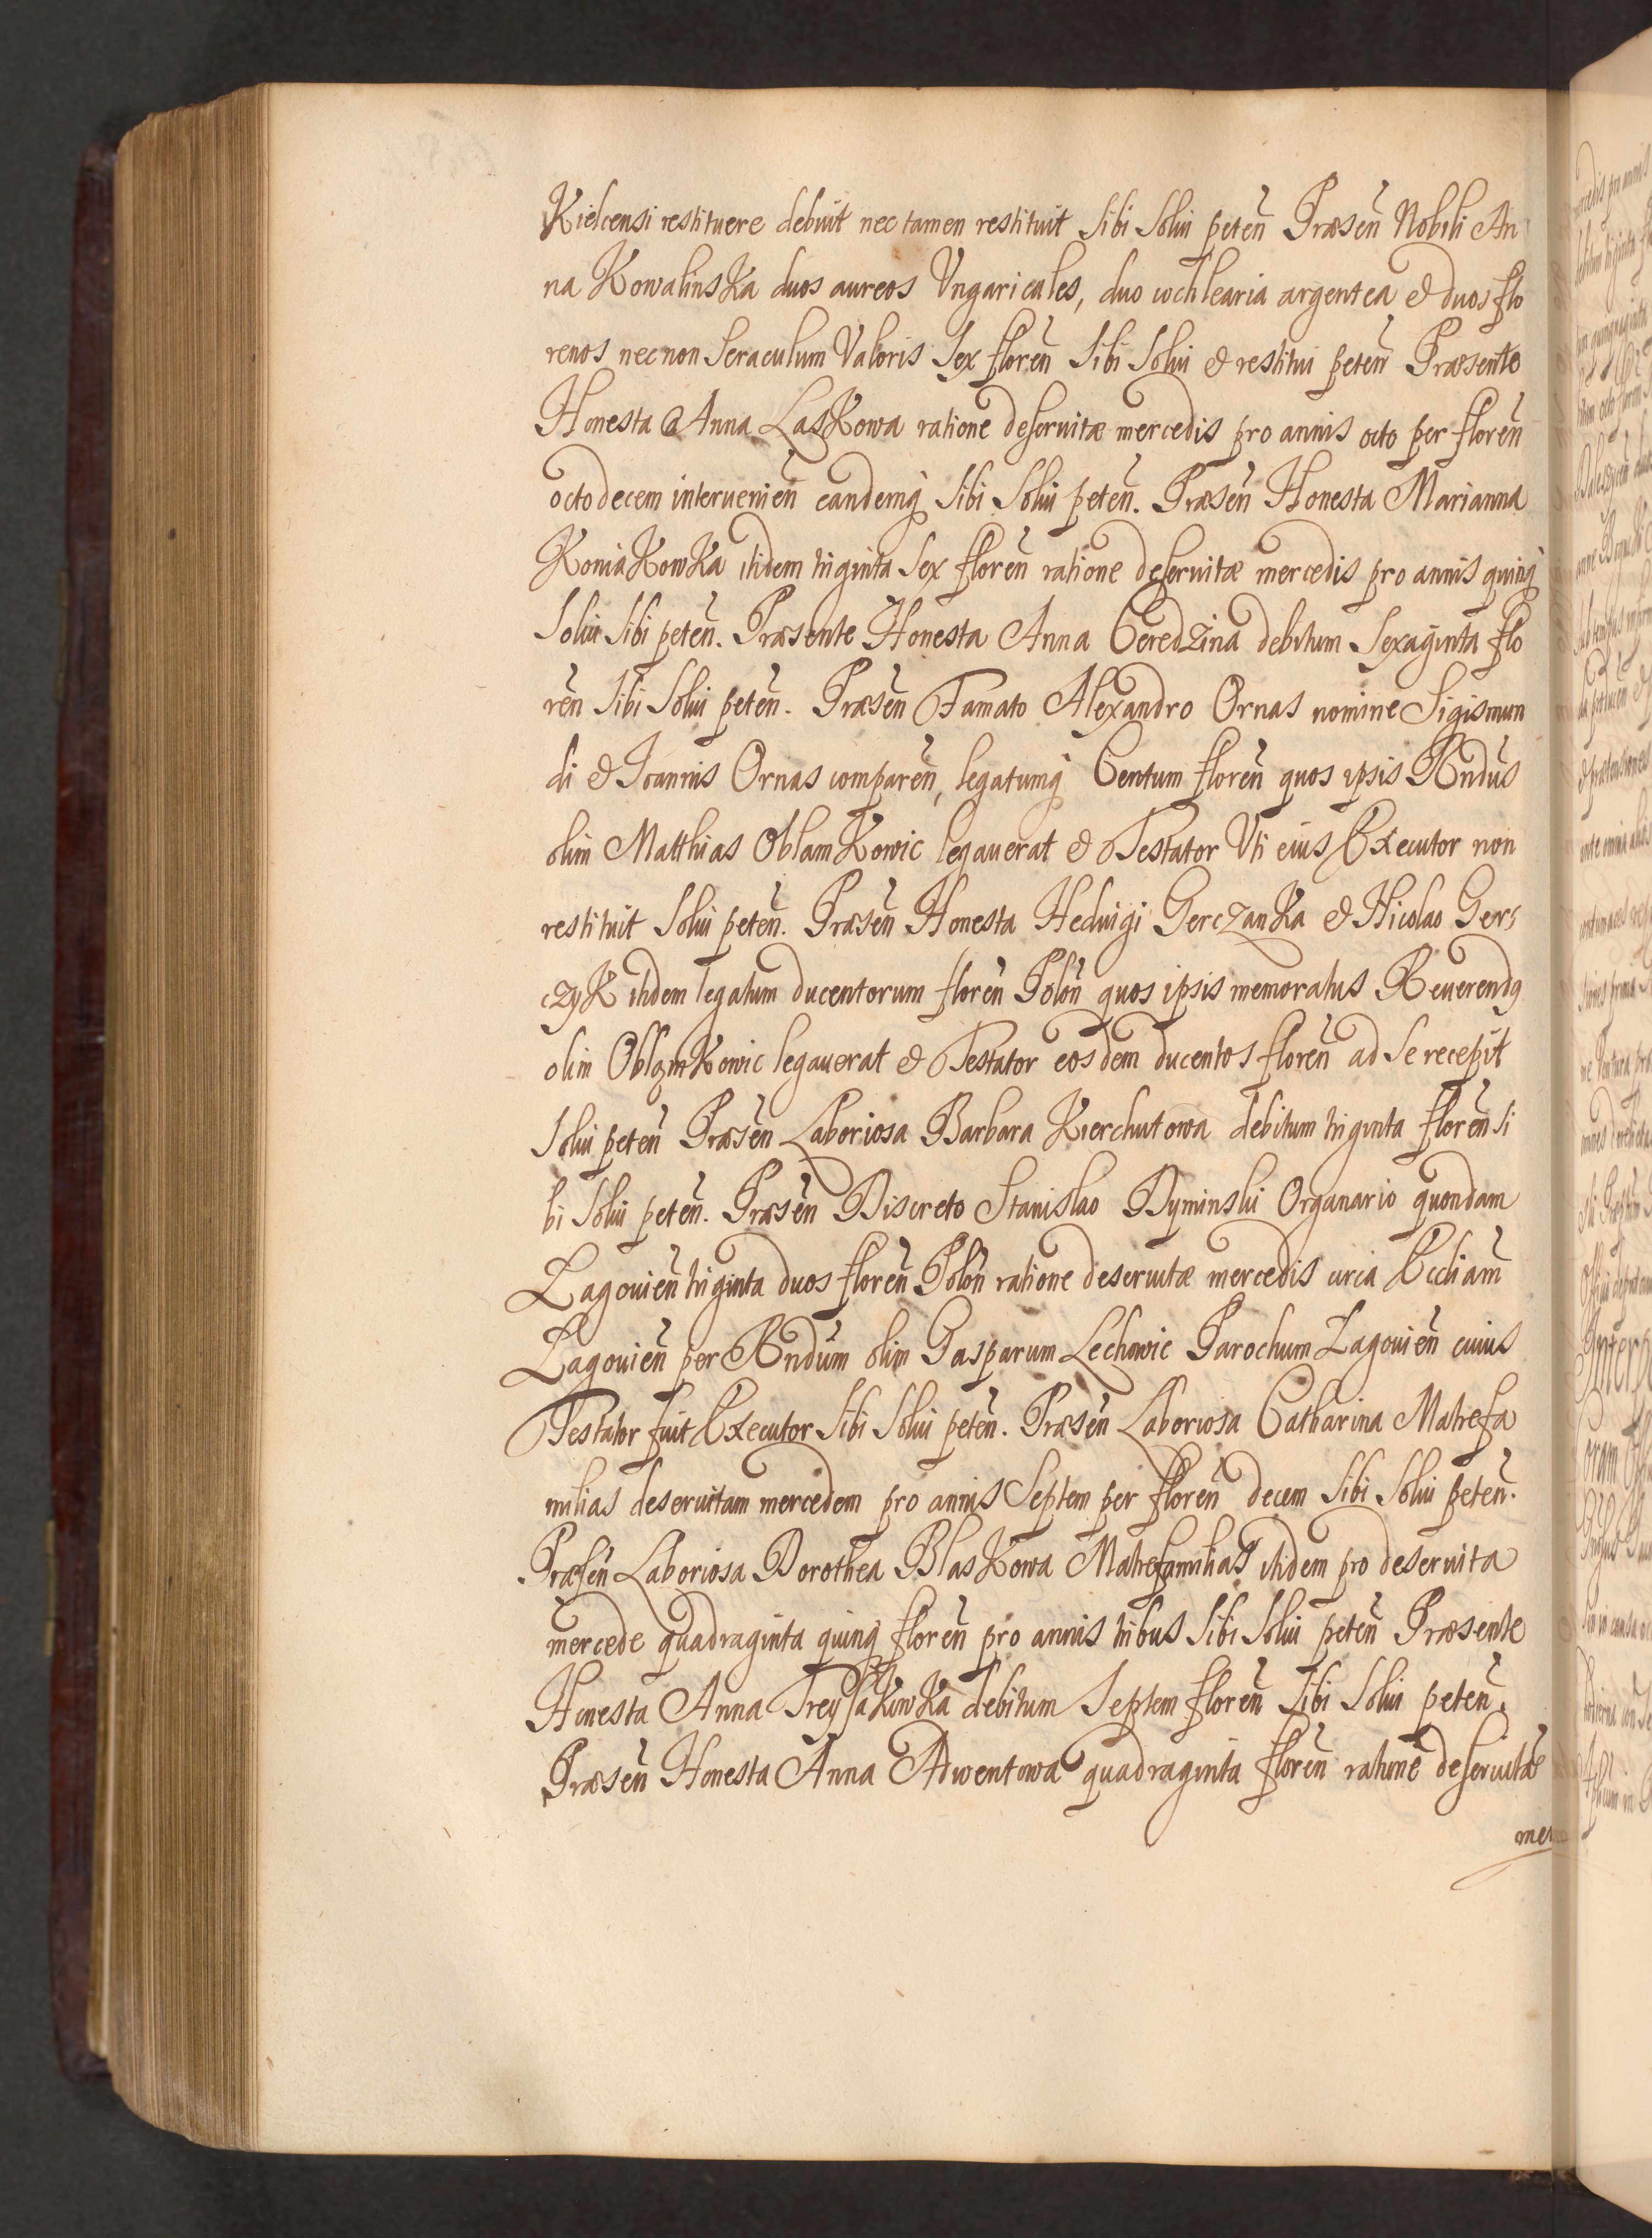 Kielcensi restituere debuit nec tamen restituit sibi solui peteñ Præseñ Nobili An
na Kowalinska duos aureos Vngaricales, duo cochlearia argentea & duos flo
renos necnon seraculum Valoris sex floreñ sibi solui & restitui peteñ Præsente
Honesta Anna Laskowa ratione deseruitæ mercedis pro annis octo per floreñ
octodecem interuenieñ eandemq sibi solui peteñ. Præseñ Honesta Marianna
Koniakowka itidem triginta sex floreñ ratione deseruitæ mercedis pro annis quinq
solui sibi peteñ. Præsente Honesta Anna Ceredzina debitum sexaginta flo
reñ sibi solui peteñ. Præseñ Famato Alexandro Ornas nomine Sigismun
di & Joannis Ornas compareñ, legatumq Centum floreñ quos ipsis Rndus
olim Matthias Oblamkowic legauerat & Testator Vti eius Executor non
restituit solui peteñ. Præseñ Honesta Heduigi Gerczanka & Nicolao Ger
czyk itidem legatum ducentorum floreñ Poloñ quos ipsis memoratus Reuerendq
olim Oblamkowic legauerat & Testator eosdem ducentos floreñ ad se recepit
solui peteñ Præseñ Laboriosa Barbara Kierchutowa debitum triginta floreñ si
bi solui peteñ. Præseñ Discreto Stanislao Dyminski Organario quondam
Lagouieñ triginta duos floreñ Poloñ ratione deseruitæ mercedis circa Eccliam
Lagouieñ per Rndum olim Gasparum Lechowic Parochum Lagouieñ cuius
Testator fuit Executor sibi solui peteñ. Præseñ Laboriosa Catharina Matrefa
milias deseruitam mercedem pro annis septem per floreñ decem sibi solui peteñ.
Præseñ Laboriosa Dorothea Blaskowa Matrefamilias itidem pro deseruita
mercede quadraginta quinq floreñ pro annis tribus sibi solui peteñ Præsente
Honesta Anna Treysakowka debitum septem floreñ sibi solui peteñ.
Præseñ Honesta Anna Adwentowa quadraginta floreñ ratione deseruitæ